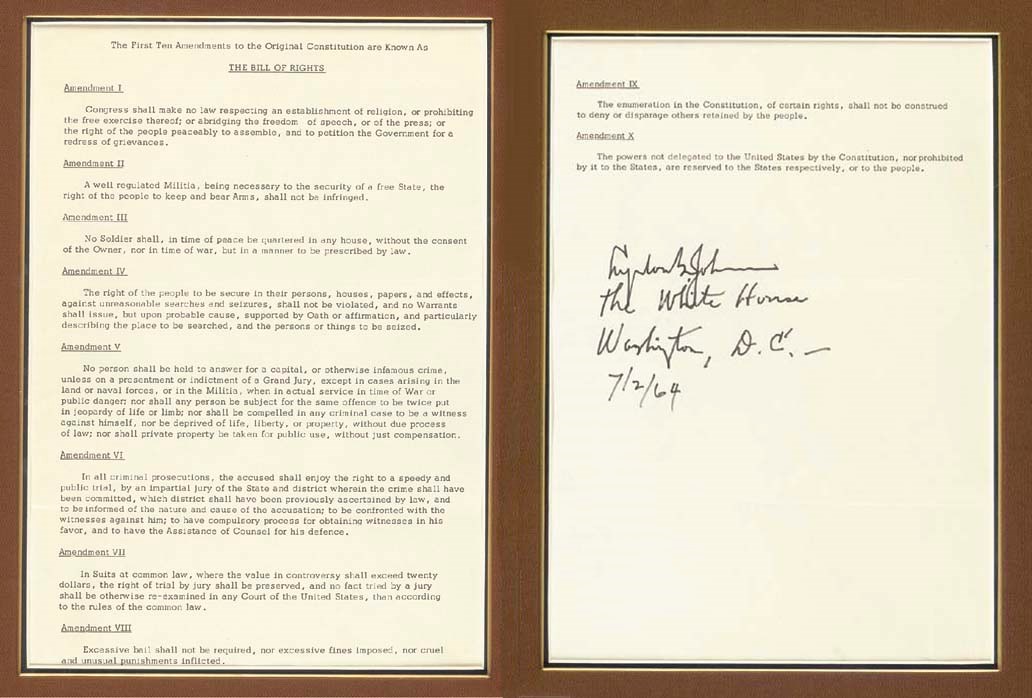 The First Ten Amendments to the Original Constitution are Known As
THE BILL OF RIGHTS
Amendment I
Congress shall make no law respecting an establishment of religion, or prohibiting
the free exercise thereof; or abridging the freedom of speech, or of the press; or
the right of the people peaceably to assemble, and to petition the Government for a
redress of grievances.
Amendment II
A well regulated Militia, being necessary to the security of a free State, the
right of the people to keep and bear Arms, shall not be infringed.
Amendment III
No Soldier shall, in time of peace be quartered in any house, without the consent
of the Owner, nor in time of war, but in a manner to be prescribed by law.
Amendment IV
The right of the people to be secure in their persons, houses, papers, and effects,
against unreasonable searches and seizures, shall not be violated, and no Warrants
shall issue, but upon probable cause, supported by Oath or affirmation, and particularly
describing the place to be searched, and the persons or things to be seized.
Amendment V
No person shall be held to answer for a capital, or otherwise infamous crime,
unless on a presentment or indictment of a Grand Jury, except in cases arising in the
land or naval forces, or in the Militia, when in actual service in time of War or
public danger; nor shall any person be subject for the same offence to be twice put
in jeopardy of life or limb; nor shall be compelled in any criminal case to be a witness
against himself, nor be deprived of life, liberty, or property, without due process
of law; nor shall private property be taken for public use, without just compensation.
Amendment VI
In all criminal prosecutions, the accused shall enjoy the right to a speedy and
public trial, by an impartial jury of the State and district wherein the crime shall have
been committed, which district shall have been previously ascertained by law, and
to be informed of the nature and cause of the accusation; to be confronted with the
witnesses against him; to have compulsory process for obtaining witnesses in his
favor, and to have the Assistance of Counsel for his defence.
Amendment VII
In Suits at common law, where the value in controversy shall exceed twenty
dollars, the right of trial by jury shall be preserved, and no fact tried by a jury
shall be otherwise re-examined in any Court of the United States, than according
to the rules of the common law.
Amendment VIII
Excessive bail shall not be required, nor excessive fines imposed, nor cruel
and unusual punishments inflicted.
Amendment IX
The enumeration in the Constitution, of certain rights, shall not be construed
to deny or disparage others retained by the people.
Amendment X
The powers not delegated to the United States by the Constitution, nor prohibited
by it to the States, are reserved to the States respectively, or to the people.
Lyndon B. Johnson
The White House
Washington, D.C. —
7/2/64